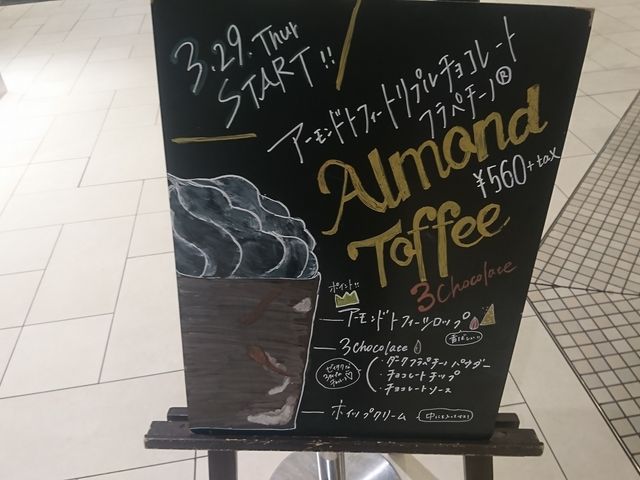 3.29.Thur
START!!
アーモンドトフィートリプルチョコレート
フラペチーノ®
Almond
¥560+tax
Toffee
3 Chocolace
ポイント!!
アーモンドトフィーシロップ
3 Chocolace
・ダークフラペチーノパウダー
・チョコレートチップ
・チョコレートソース
ホイップクリーム